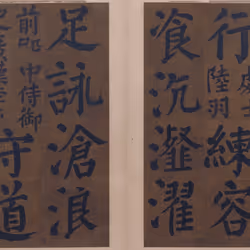 行
士
陸羽
練容
飡沆瀣濯
足詠滄浪
前殿中侍御
守道